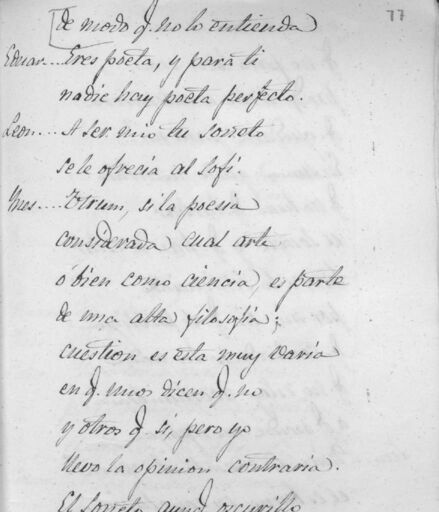 77
de modo q. no lo entienda
Eduar... Eres poeta, y para ti
nadie hay poeta perfecto.
Leon... A ser mio tu soneto
se le ofrecia al Sofi.
Utrum, si la poesia
considerada cual arte
o bien como ciencia, es parte
de una alta filosofia;
cuestion es esta muy varia
en q. unos dicen q. no
y otros q. si, pero yo
llevo la opinion contraria.
El soneto aunq. oscurillo